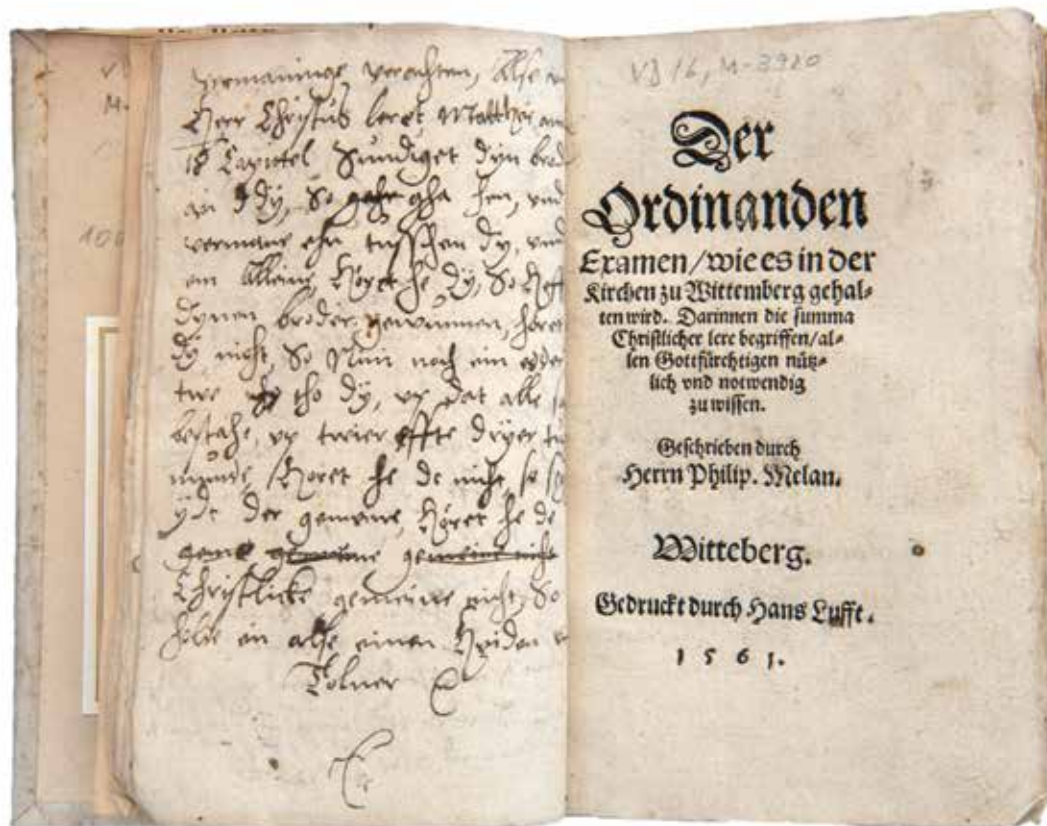 vermaninge verachten, Alse
Herr Christus leret Matthei am
18 Capittel Sundiget dyn brod
an dy, So gha hen, vnd
vermane ehn tusschen dy, vnd
em Alleine, Horet he dy, So heff
dynen broder gewunnen, horet
dy nicht, So Nim noch ein edder
twe tho dy, vp dat alle
bestahe, vp twier effte dryer
munde, Horet he de nicht, so
de der gemeine, Horet he de
Christlicke gemeine nicht, So
holde en alse einen Heiden
Tolner
VD 16, M-3920
Der
Ordinanden
Examen/wie es in der
Kirchen zu Wittemberg gehal-
ten wird. Darinnen die summa
Christlicher lere begriffen/al-
len Gottfürchtigen nütz-
lich vnd notwendig
zu wissen.
Geschrieben durch
Herrn Philip. Melan.
Witteberg.
Gedruckt durch Hans Lufft.
1561.